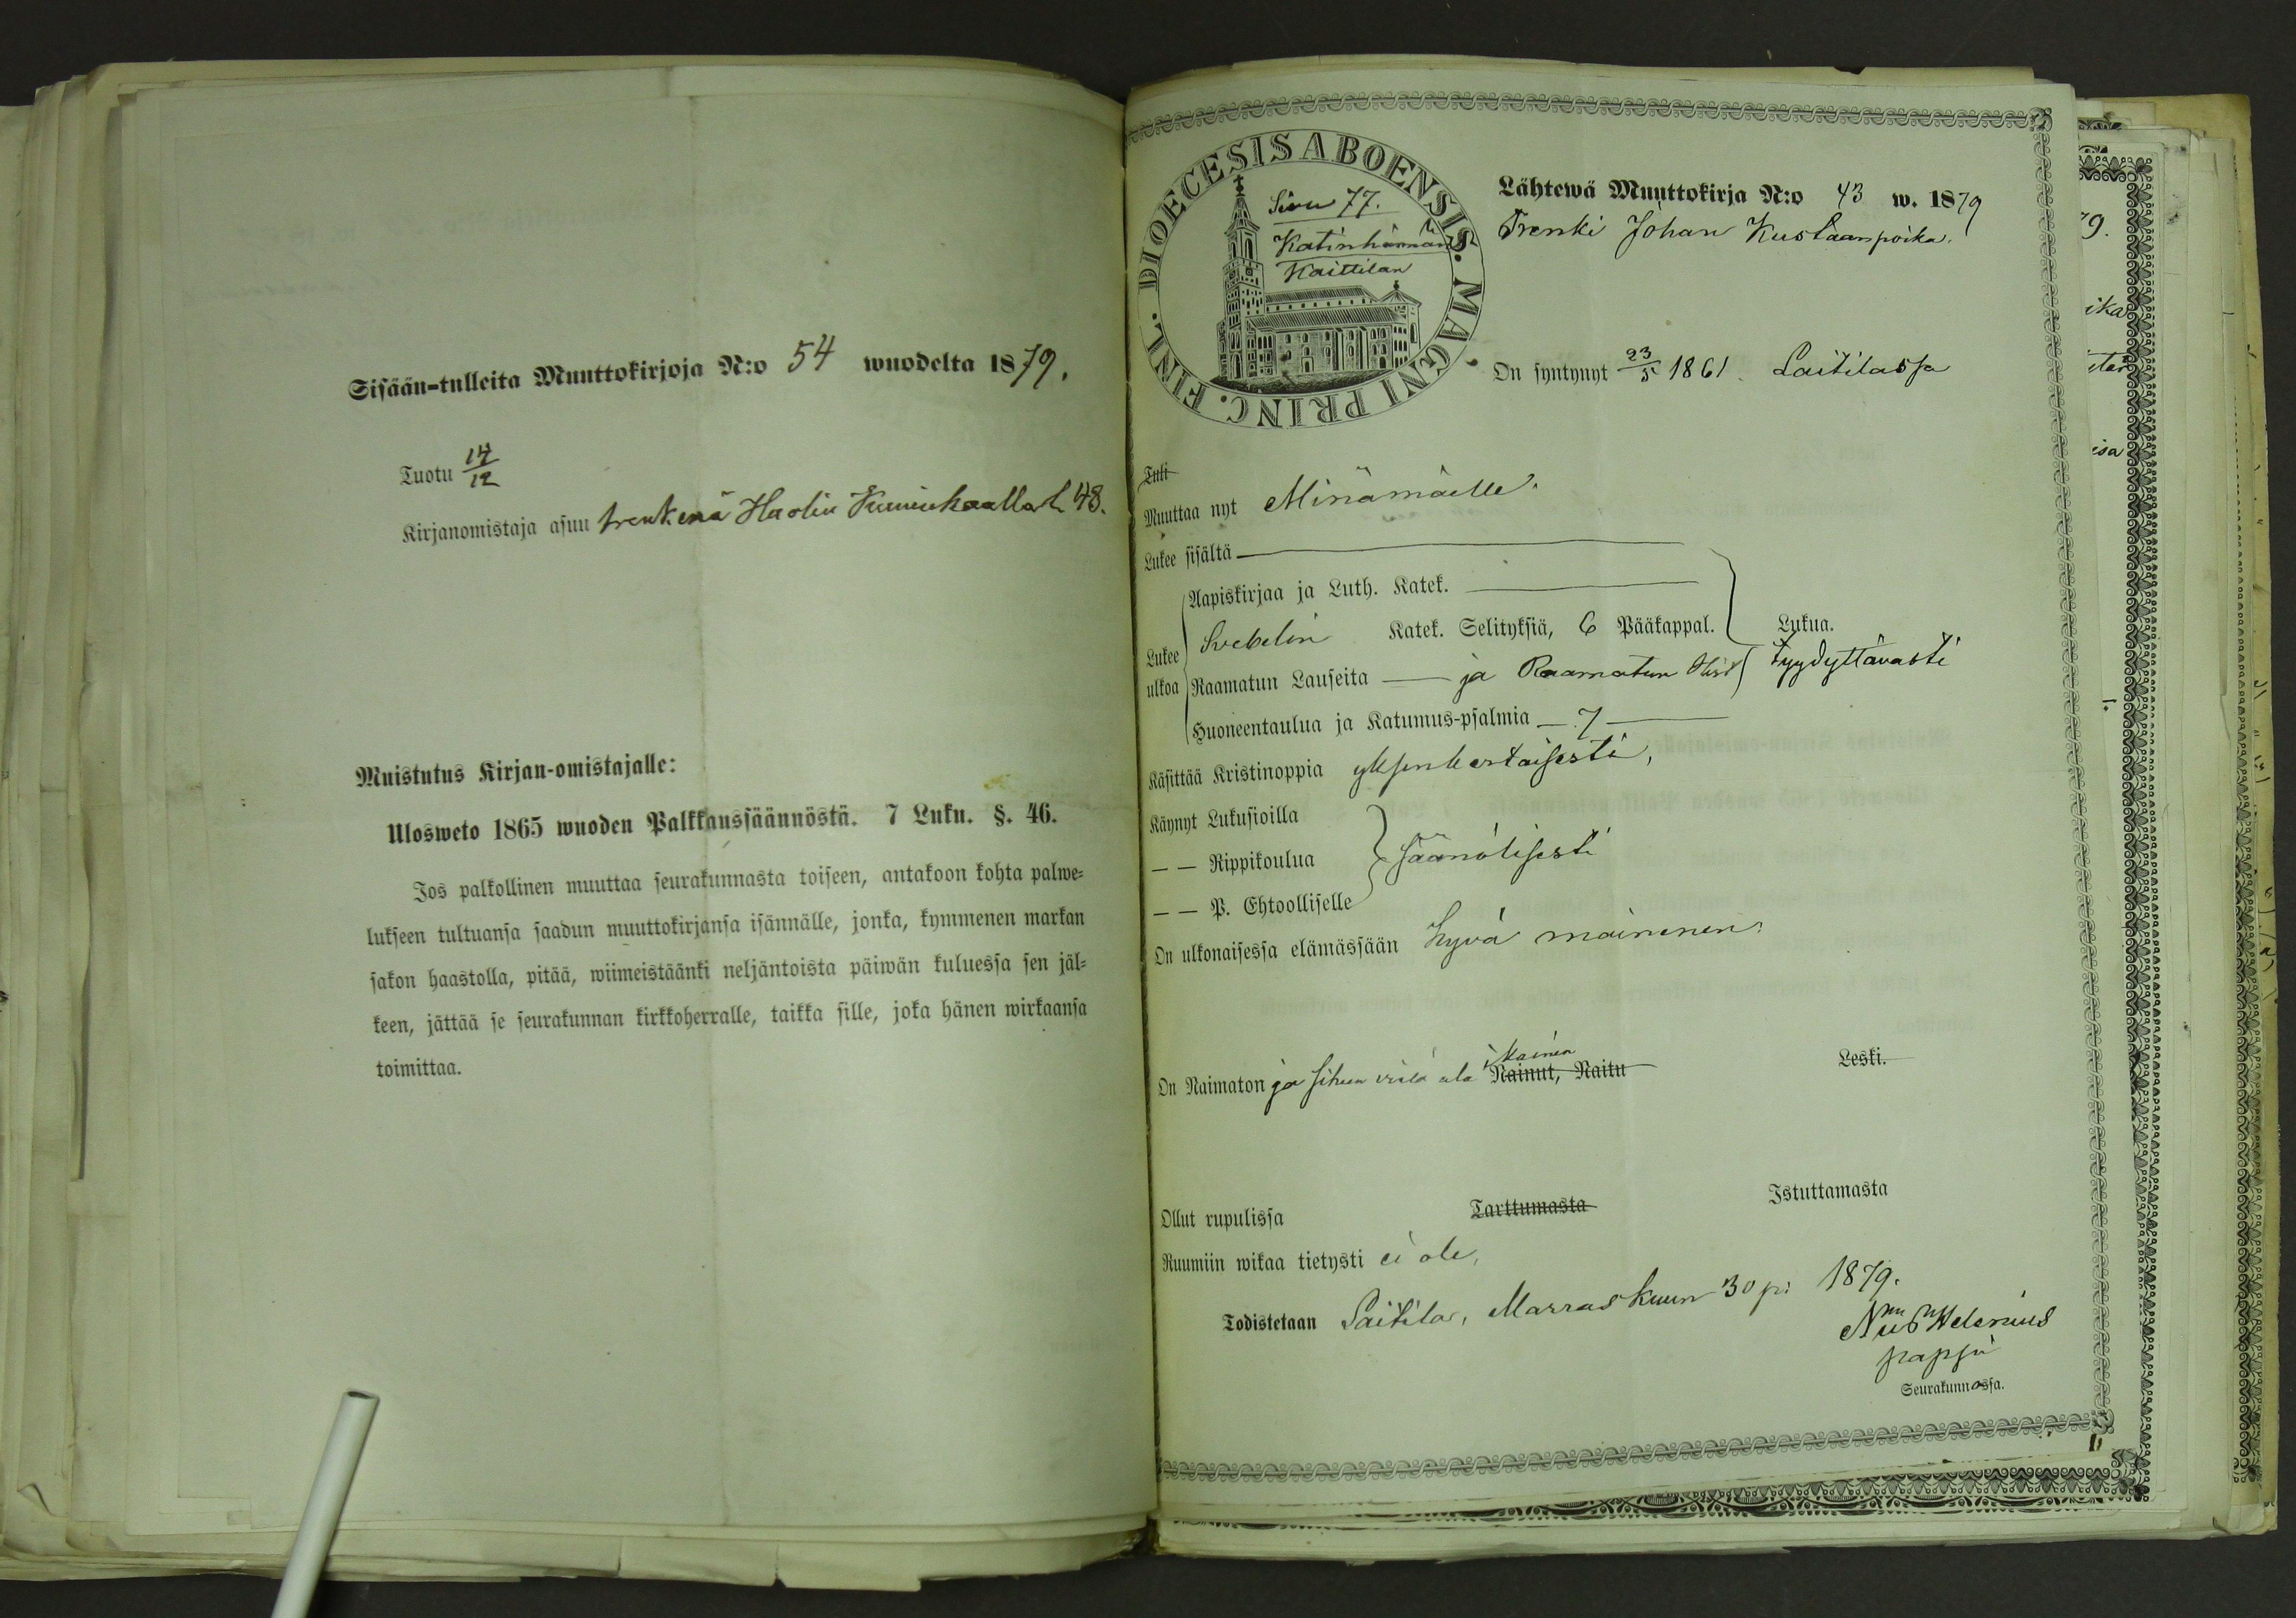 Sisään-tulleita Muuttokirjoja N:o 54 wuodelta 1879.
Tuotu 14/12
Kirjanomistaja asuu trenkinä Haolin 48.
Muistutus Kirjan-omistajalle:
Ulosweto 1865 wuoden Palkkaussäännöstä. 7 Luku. §. 46.
Jos palkollinen muuttaa seurakunnasta toiseen, antakoon kohta palwe-
lukseen tultuansa saadun muuttokirjansa isännälle, jonka, kymmenen markan
sakon haastolla, pitää, wiimeistäänki neljäntoista päiwän kuluessa sen jäl-
keen, jättää se seurakunnan kirkkoherralle, taikka sille, joka hänen wirkaansa
toimittaa.
DIOECESIS ABOENSIS. MAGNI PRINC. FINL.
Sivu 77.
Katinhännän
Kaittilan
Lähtewä Muuttokirja N:o 43 w. 1879
Trenki Johan Kustaanpoika.
On syntynyt 23/5 1861. Laitilassa
Tuli
Muuttaa nyt Minämäelle.
Lukee sisältä
Aapiskirjaa ja Luth. Katek.
Lukee ulkoa
Svebelin Katek. Selityksiä, 6 Pääkappal.
Lukua.
Raamatun Lauseita — ja Raamatun Hist
tyydyttävästi
Huoneentaulua ja Katumus-psalmia — 7 —
Käsittää Kristinoppia yksinkertaisesti,
Käynyt Lukusioilla
— — Rippikoulua säänölisesti
— — P. Ehtoolliselle
On ulkonaisessa elämässään hyvä maininen.
On Naimaton ja siheen vielä ala ikäinen Nainut, Naitu Leski.
Ollut rupulissa Tarttumasta Istuttamasta
Ruumiin wikaa tietysti ei ole,
Todistetaan Laitila, Marraskuun 30 p: 1879.
Helenius
pappi
Seurakunnassa.